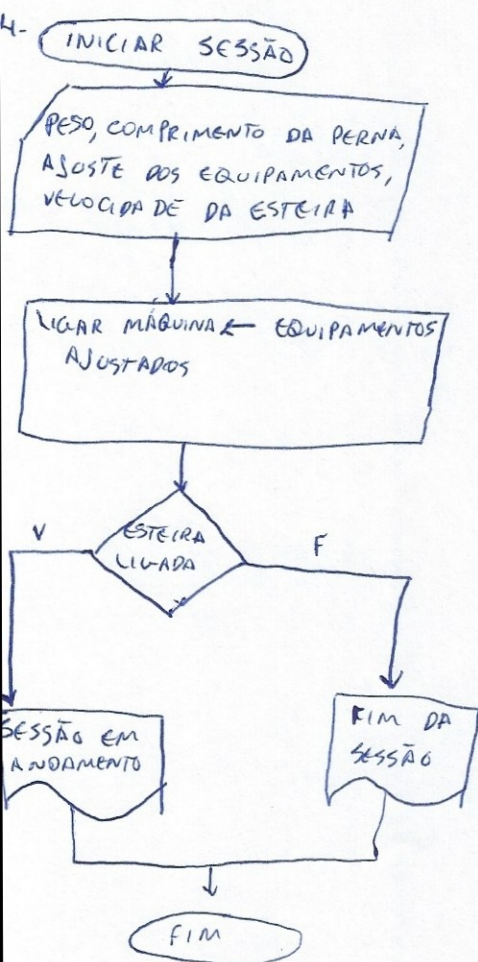 4-
INICIAR SESSÃO
PESO, COMPRIMENTO DA PERNA,
AJUSTE DOS EQUIPAMENTOS,
VELOCIDADE DA ESTEIRA
LIGAR MÁQUINA ← EQUIPAMENTOS
AJUSTADOS
ESTEIRA
LIGADA
V
F
SESSÃO EM
ANDAMENTO
FIM DA
SESSÃO
FIM